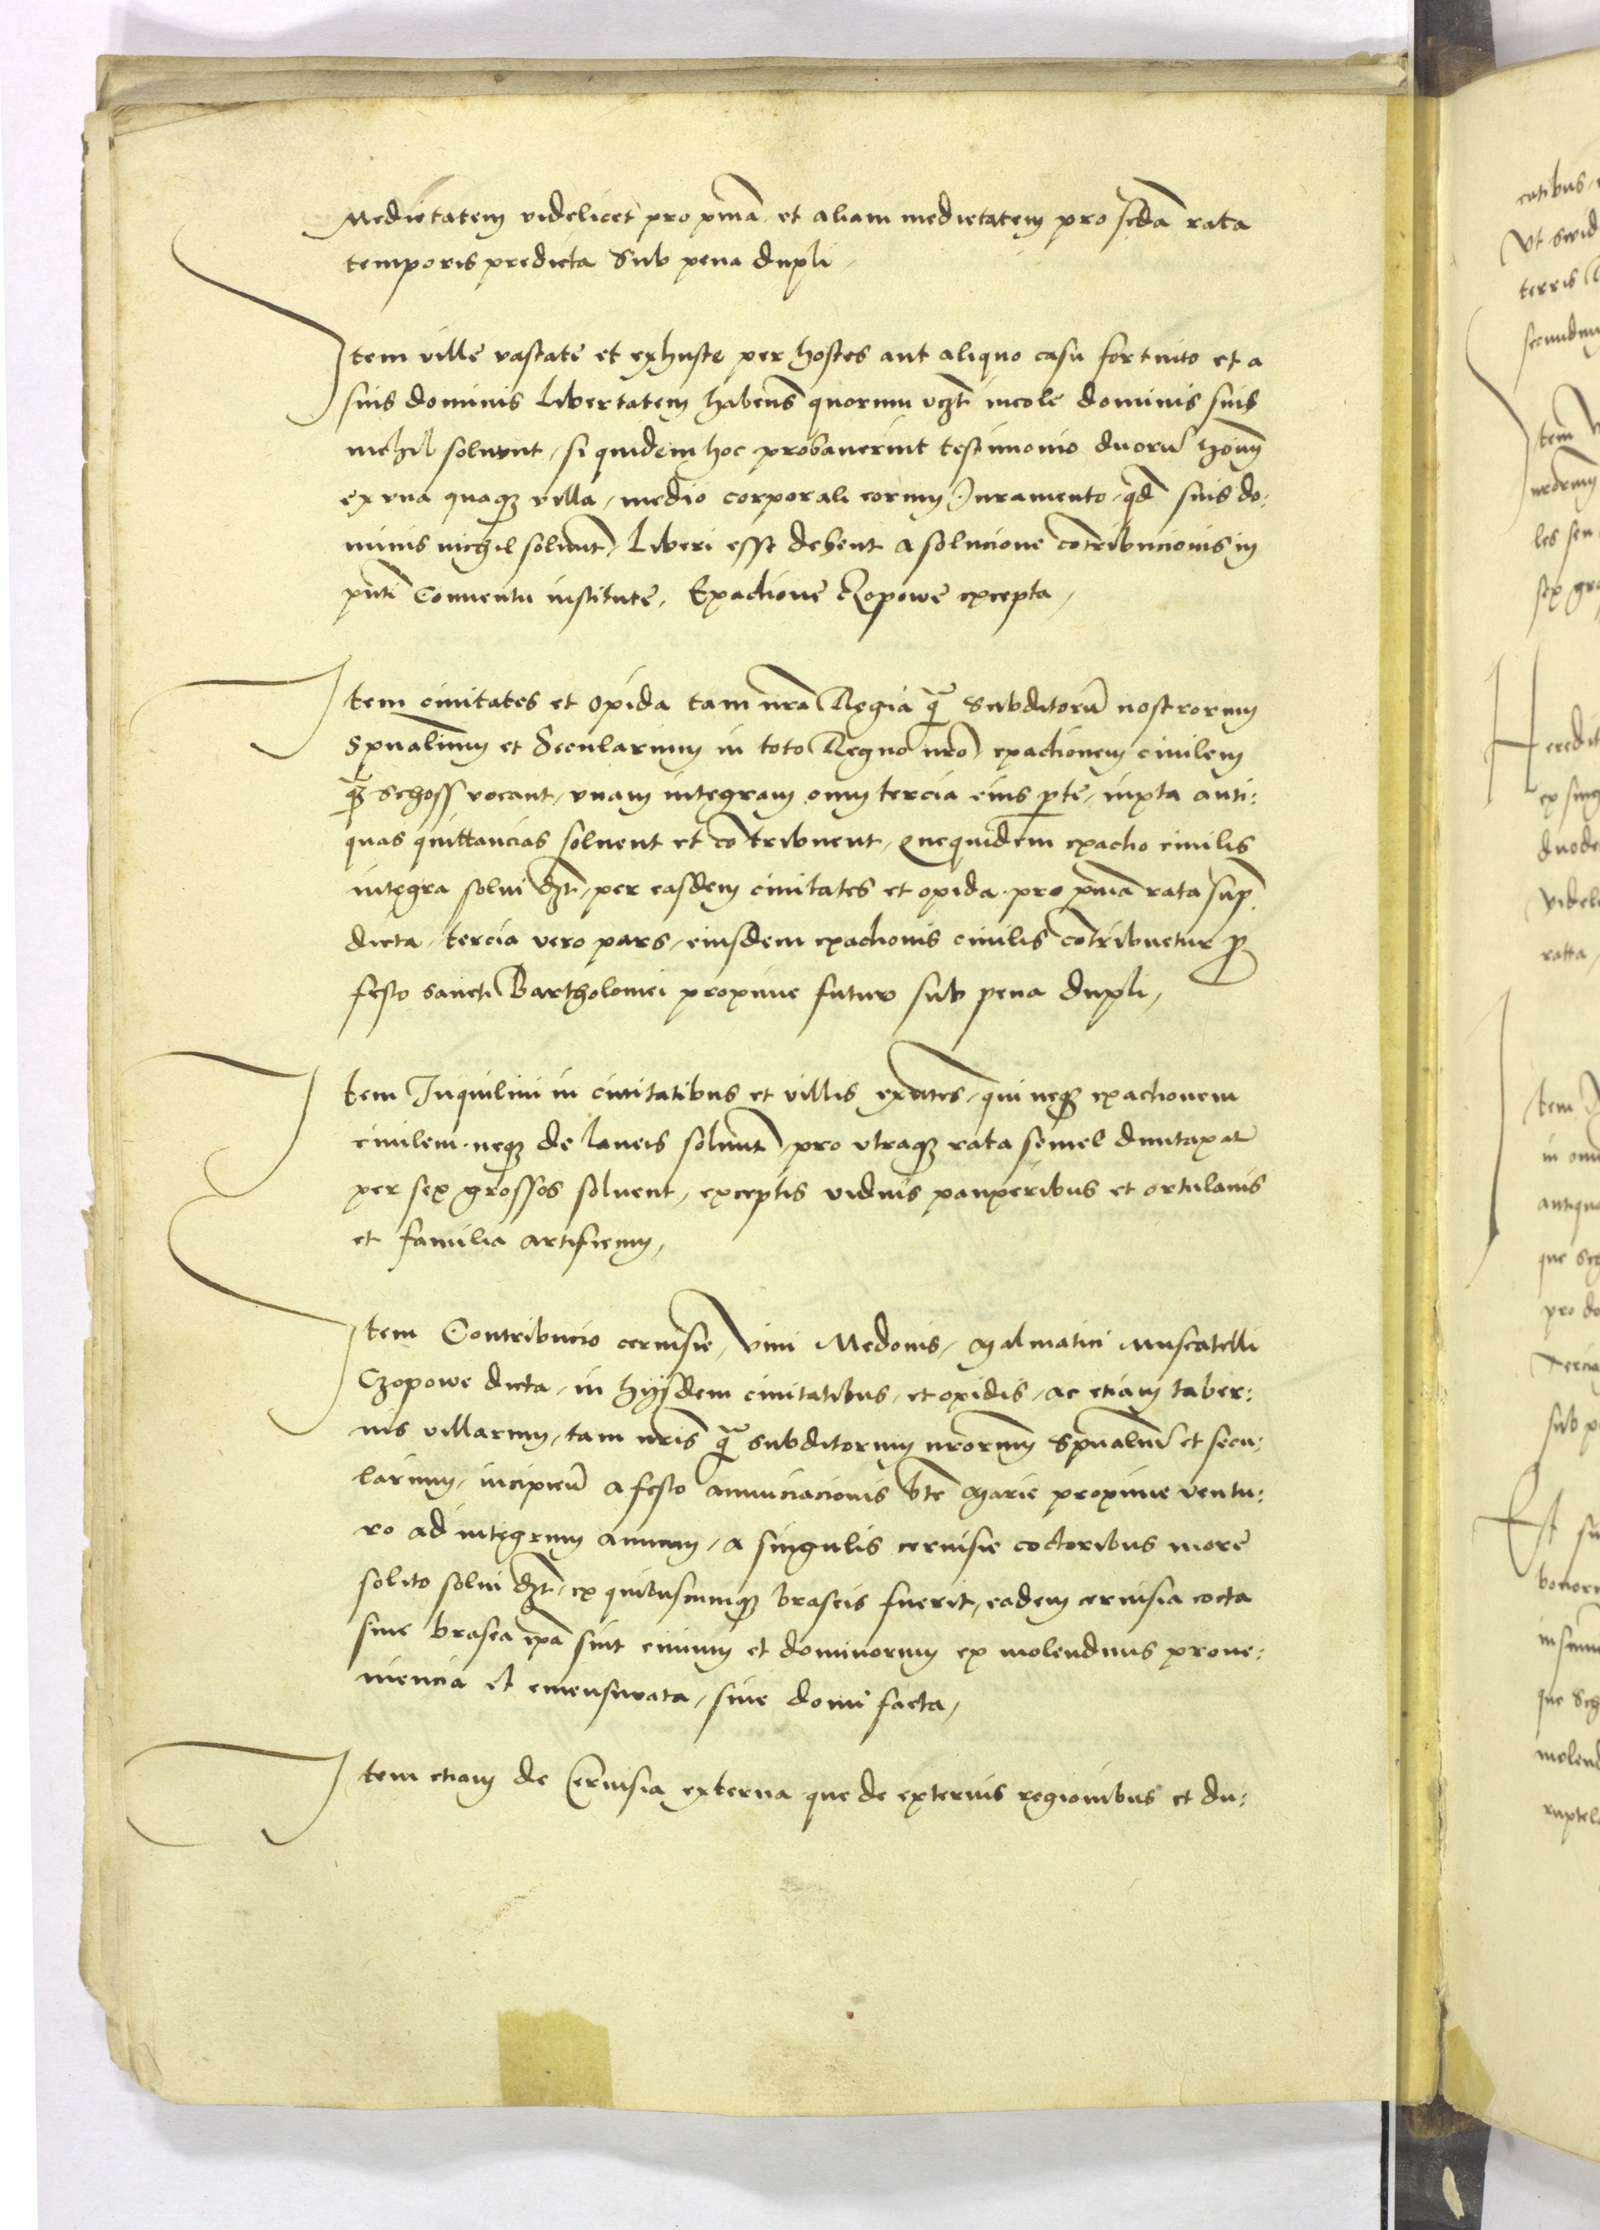 Medietatem videlicet pro pma et aliam medietatem pro scda rata
temporis predicta Sub pena dupli,
Item ville vastate et exhuste per hostes aut aliquo casu fortuito et a
suis dominis Libertatem habens quorum vczt incole dominis suis
nichil soluunt, si quidem hoc probauerint testimonio duoru hoim
ex vna quaqz villa, medio corporali eorum Juramento, qd suis do:
minis nichil soluunt, Liberi esse debent a solucione contribucionis in
pnti Conuentu institute, Exactione Czopowe excepta,
Item ciuitates et opida tam nra Regia q subditoru nostrorum
Spualium et Secularium in toto Regno nro exactionem ciuilem
qz Schoss vocant, vnam integram cum tercia eius pte, iuxta anti:
quas quittancias soluent et contribuent, Quequidem exactio ciuilis
integra solui dzt, per easdem ciuitates et opida pro pma rata sup
dicta, tercia vero pars, eiusdem exactionis ciuilis contribuetur p
festo sancti Bartholomei proxime futuro sub pena dupli,
Item Inquilini in ciuitatibus et villis exntes, qui neqz exactionem
ciuilem neqz de laneis soluunt, pro vtraqz rata semel duntaxat
per sex grossos soluent, exceptis viduis pauperibus et ortulanis
et familia artificum,
Item Contribucio ceruisie, vini Medonis, Malmatici Muscatelli
Czopowe dicta, in hijsdem ciuitatibus, et opidis, ac etiam taber:
nis villarum, tam nris q subditorum nrorum Spualiu et secu:
larium, incipien a festo annunciacionis bte Marie proxime ventu:
ro ad integrum annum, a singulis ceruisie coctoribus more
solito solui dzt, ex quibuscumqz braseis fuerit, eadem ceruisia cocta
siue brasea ipa sint ciuium et dominorum ex molendinis proue:
niencia et emensurata, siue domi facta,
Item etiam de Ceruisia externa que de externis regionibus et du: